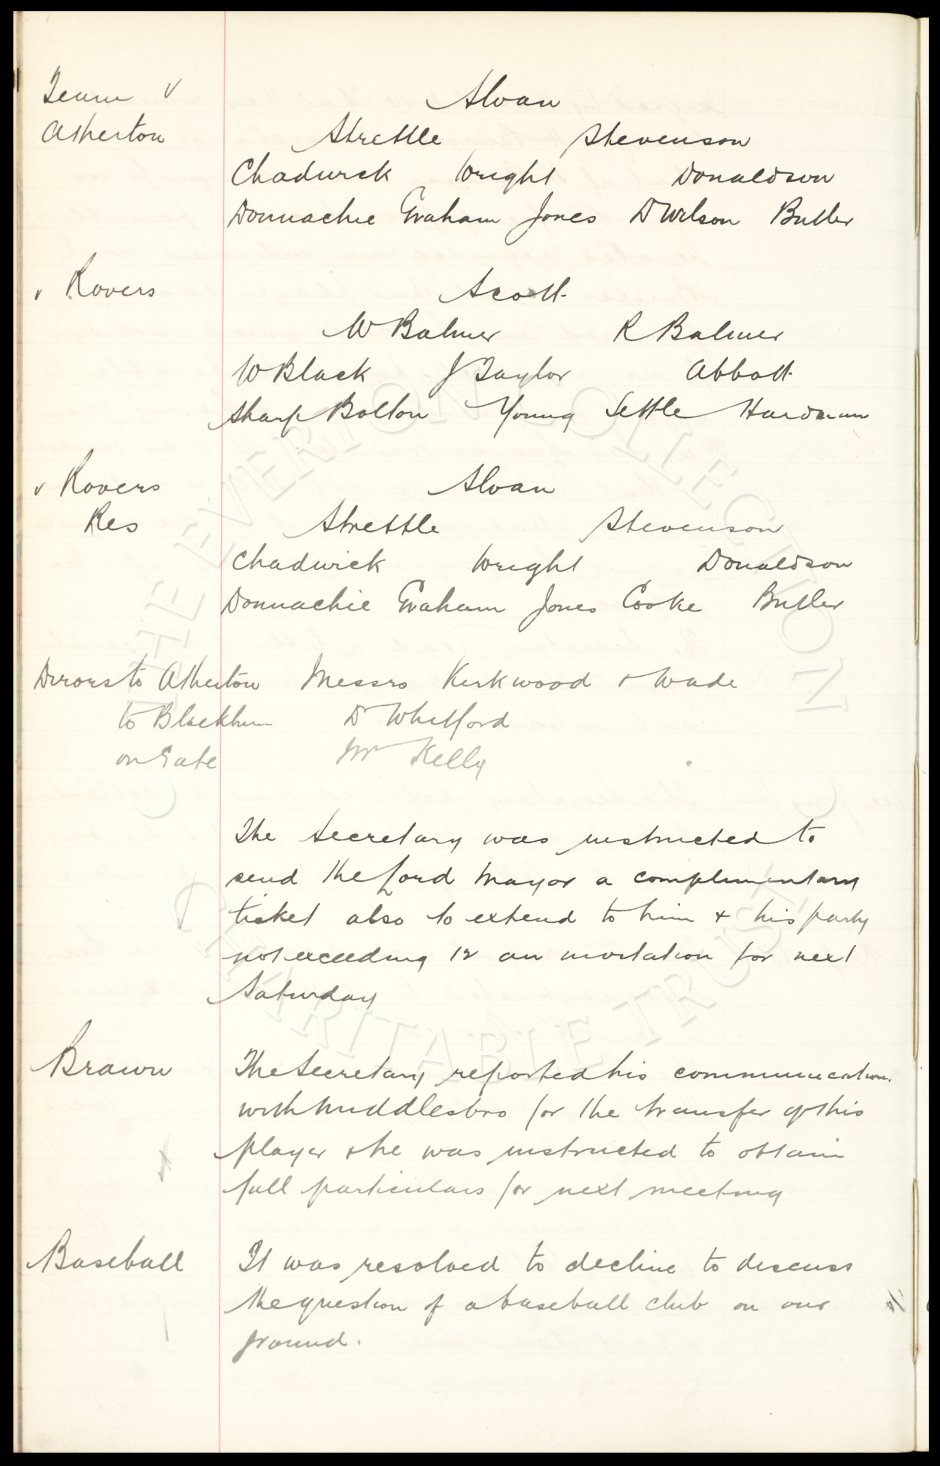 Team v
Atherton
Sloan
Strettle Stevenson
Chadwick Wright Donaldson
Donnachie Graham Jones D Wilson Butler
v Rovers
Scott
W Balmer R Balmer
W Black J Taylor Abbott
Sharp Bolton Young Settle Hardman
v Rovers
Res
Sloan
Strettle Stevenson
Chadwick Wright Donaldson
Donnachie Graham Jones Cooke Butler
Dirors to Atherton Messrs Kirkwood & Wade
to Blackburn Dr Whitford
on Gate Mr Kelly
The Secretary was instructed to
send the Lord Mayor a complimentary
ticket also to extend to him & his party
not exceeding 12 an invitation for next
Saturday
Brawn
The Secretary reported his communication
with Middlesbro for the transfer of this
player & he was instructed to obtain
full particulars for next meeting
Baseball
It was resolved to decline to discuss
the question of a baseball club on our
ground.
THE EVERTON COLLECTION
CHARITABLE TRUST